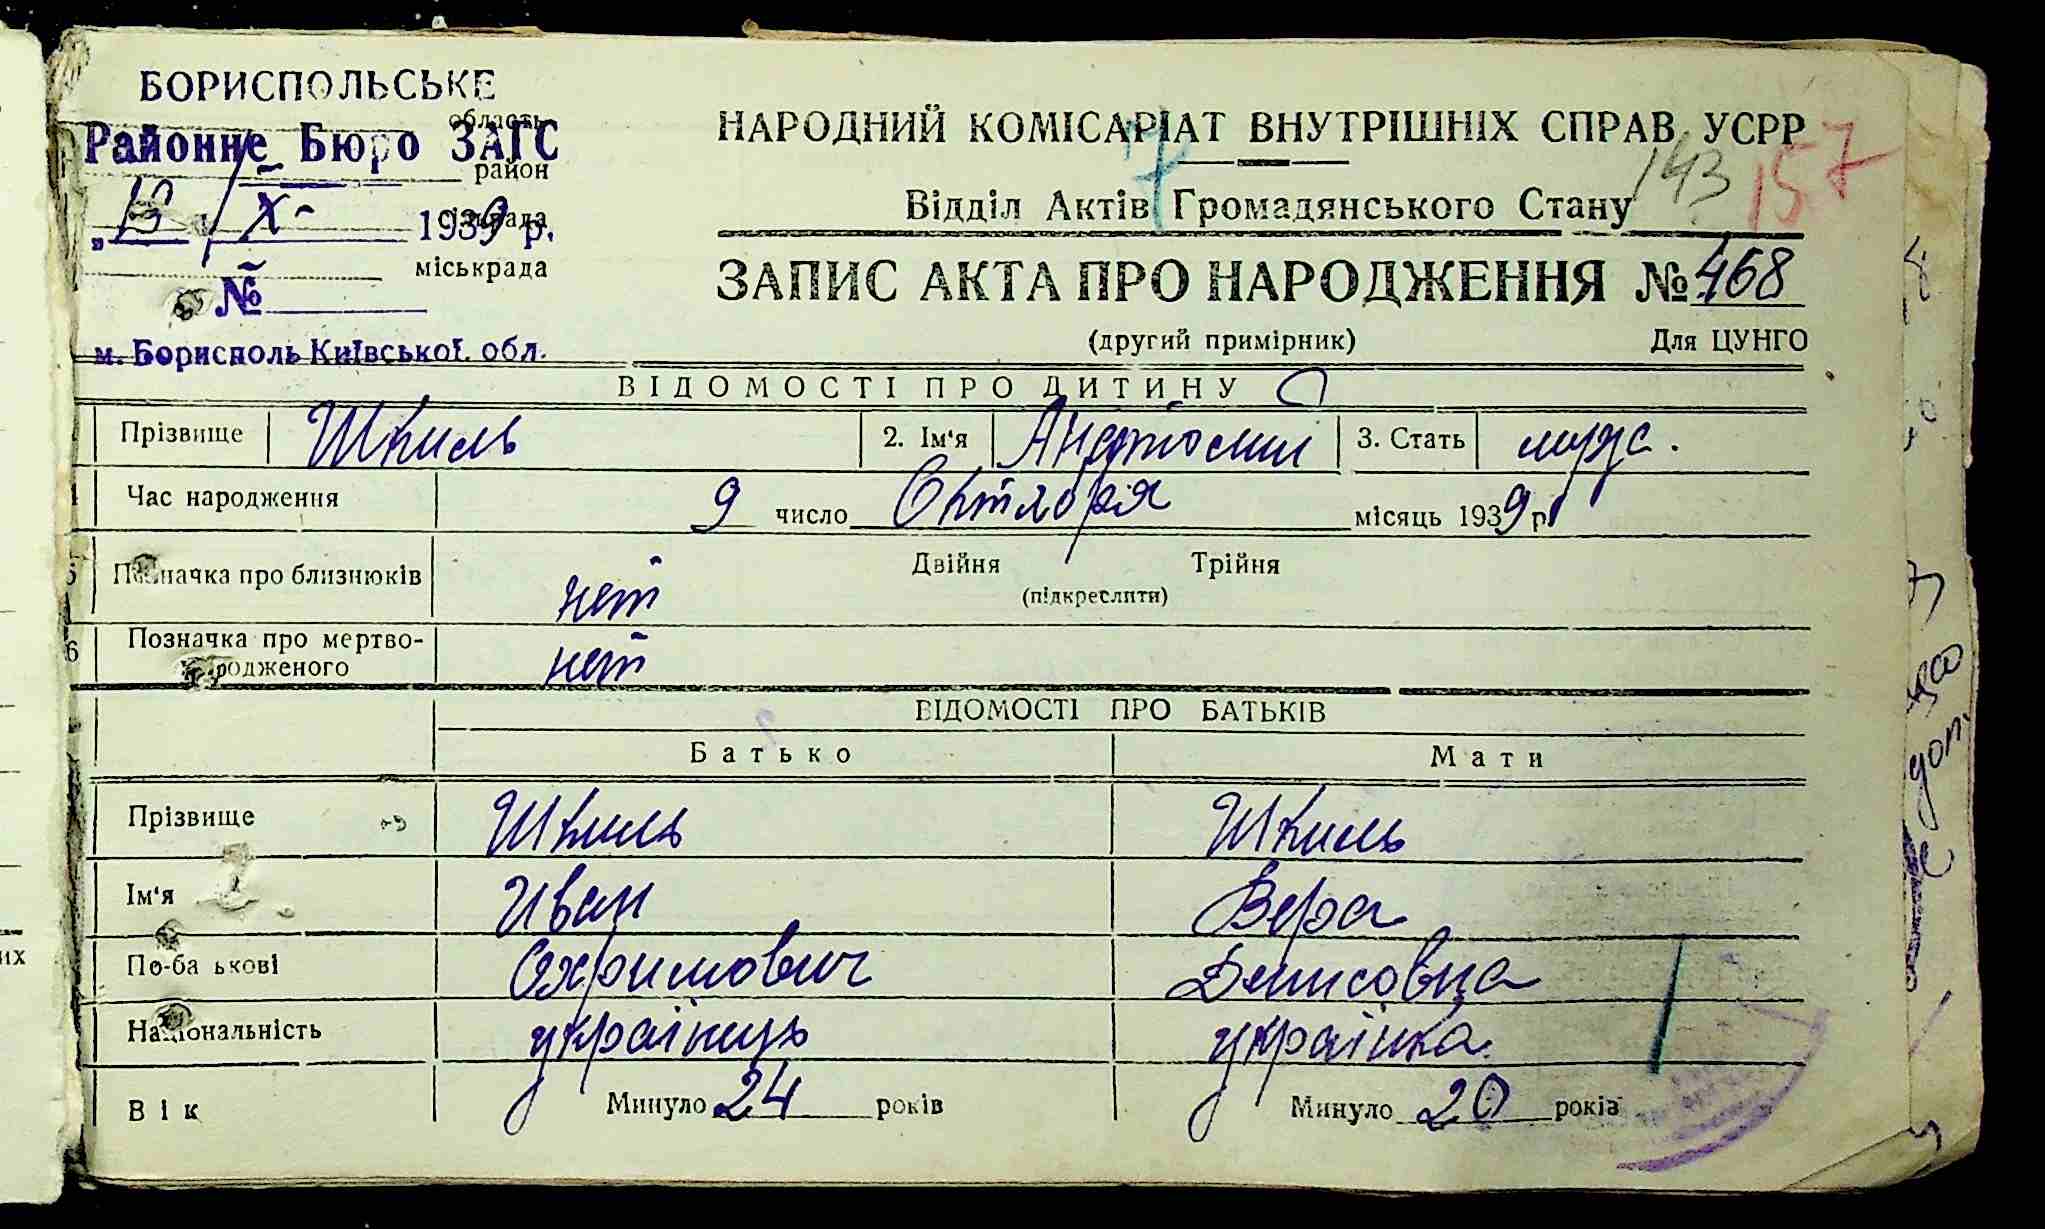 БОРИСПОЛЬСЬКЕ
область
Районне Бюро ЗАГС
район
"13" X 1939 р.
міськрада
№
м. Бориспполь Київської обл.
НАРОДНИЙ КОМІСАРІАТ ВНУТРІШНІХ СПРАВ УСРР
7 143 157
Відділ Актів Громадянського Стану
ЗАПИС АКТА ПРО НАРОДЖЕННЯ № 468
(другий примірник) Для ЦУНГО
ВІДОМОСТІ ПРО ДИТИНУ
Прізвище Шкиль 2. Ім'я 3. Стать мужс.
Час народження 9 число Октября місяць 1939 р.
5 Позначка про близнюків нет Двійня Трійня
(підкреслити)
6 Позначка про мертво-
родженого нет
ВІДОМОСТІ ПРО БАТЬКІВ
Батько Мати
Прізвище Шкиль Шкиль
Ім'я Иван Вера
По-ба ькові Охримович Денисовна
Національність українець українка.
Вік Минуло 24 років Минуло 20 років